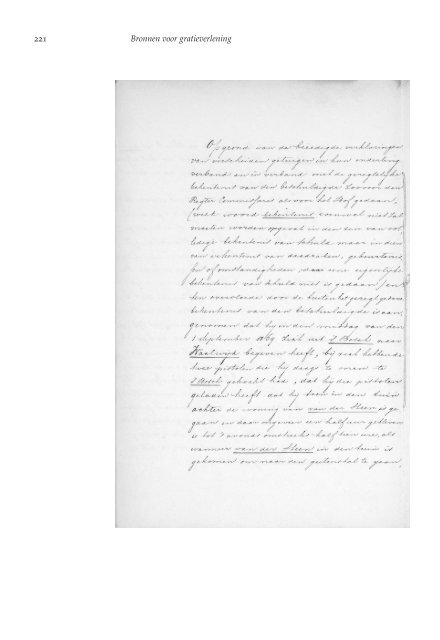 221 Bronnen voor gratieverlening
Op grond van de beëedigde verklaringen
van verscheiden getuigen in hun onderling
verband en in verband met de geregtelijke
bekentenis van den beschuldigde zoo voor den
Regter Commissaris als voor het Hof gedaan,
(welk woord bekentenis evenwel niet zal
moeten worden opgevat in den zin van vol
ledige bekentenis van schuld maar in dien
van erkentenis van daadzaken, gebeurtenis
sen of omstandigheden, waar eene eigenlijke
bekentenis van schuld niet is gedaan) en
ten overvloede door de buiten geregtelijke
bekentenis van den beschuldigde is aan
genomen dat hij in den middag van den
1 September 1869 zich uit 's Bosch naar
Kaatwijk begeven heeft, bij zich hebbende
twee pistolen die hij daags te voren te
's Bosch gekocht had, dat hij die pistolen
geladen heeft dat hij toen in den tuin
achter de woning van van der Steen is ge
gaan en daar ongeveer een half uur gebleven
is tot 's avonds omstreeks half tien ure, als
wanneer van der Steen in den tuin is
gekomen om naar den geitenstal te gaan,